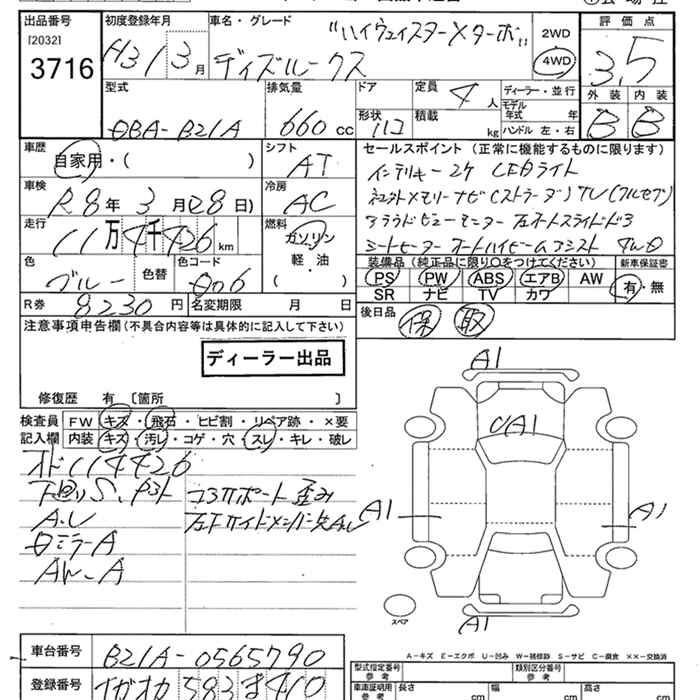 出品番号 初度登録年月 車名・グレード 評価点
[2032]
3716
H31 3月 "ハイウェイスターXターボ"
ディズルークス
2WD
4WD
3.5
型式 排気量 ドア 定員 4人 ディーラー・並行 外装 内装
DBA-B21A 660cc 形状 ハコ 積載 kg モデル年式 年
ハンドル 左・右
B B
車歴 シフト セールスポイント(正常に機能するものに限ります)
自家用・( ) AT インテリキー2ケ LEDライト
車検 冷房
R8年3月(28日) AC
アラウンドビューモニター 左オートスライドドア
走行 燃料
11万4千426km ガソリン
軽・油
( )
シートヒーター オートハイビームアシスト 4WD
色 色替 色コード
ブルー
装備品(純正品に限り○をつけてください) 新車保証書
PS PW ABS エアB AW 有・無
SR ナビ TV カワ
R券 8230円 名変期限 月 日
後日品 保 取
注意事項申告欄(不具合内容等は具体的に記入して下さい)
ディーラー出品
修復歴 有〔箇所 〕
検査員 FW キズ・飛石・ヒビ割・リペア跡・×要
記入欄 内装 キズ・汚レ・コゲ・穴・スレ・キレ・破レ
オド114426
下廻りS、P3ト
コアサポート歪み
A.U
左Fサイドメンバー先A.U
ミラーA
AW-A
A1
A1
A1
A1
A1
スペア
A-キズ E-エクボ U-凹み W-補修跡 S-サビ C-腐食 ××-交換済
車台番号 B21A-0565790
型式指定番号 参考 類別区分番号 参考
登録番号 583 ま410
車庫証明用 参考 長さ cm 幅 cm 高さ cm